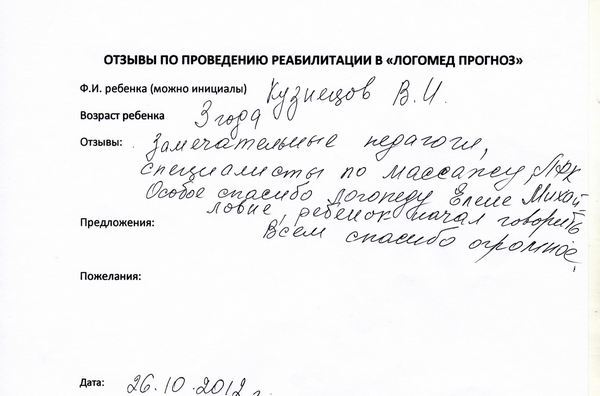 ОТЗЫВЫ ПО ПРОВЕДЕНИЮ РЕАБИЛИТАЦИИ В «ЛОГОМЕД ПРОГНОЗ»
Ф.И. ребенка (можно инициалы) Кузнецов В.И.
Возраст ребенка 3 года
Отзывы: Замечательные педагоги,
специалисты по массажу, ЛФК
Особое спасибо логопеду Елене Михай
ловне, ребёнок начал говорить
Предложения: Всем спасибо огромное!
Пожелания:
Дата: 26.10.2012 г.